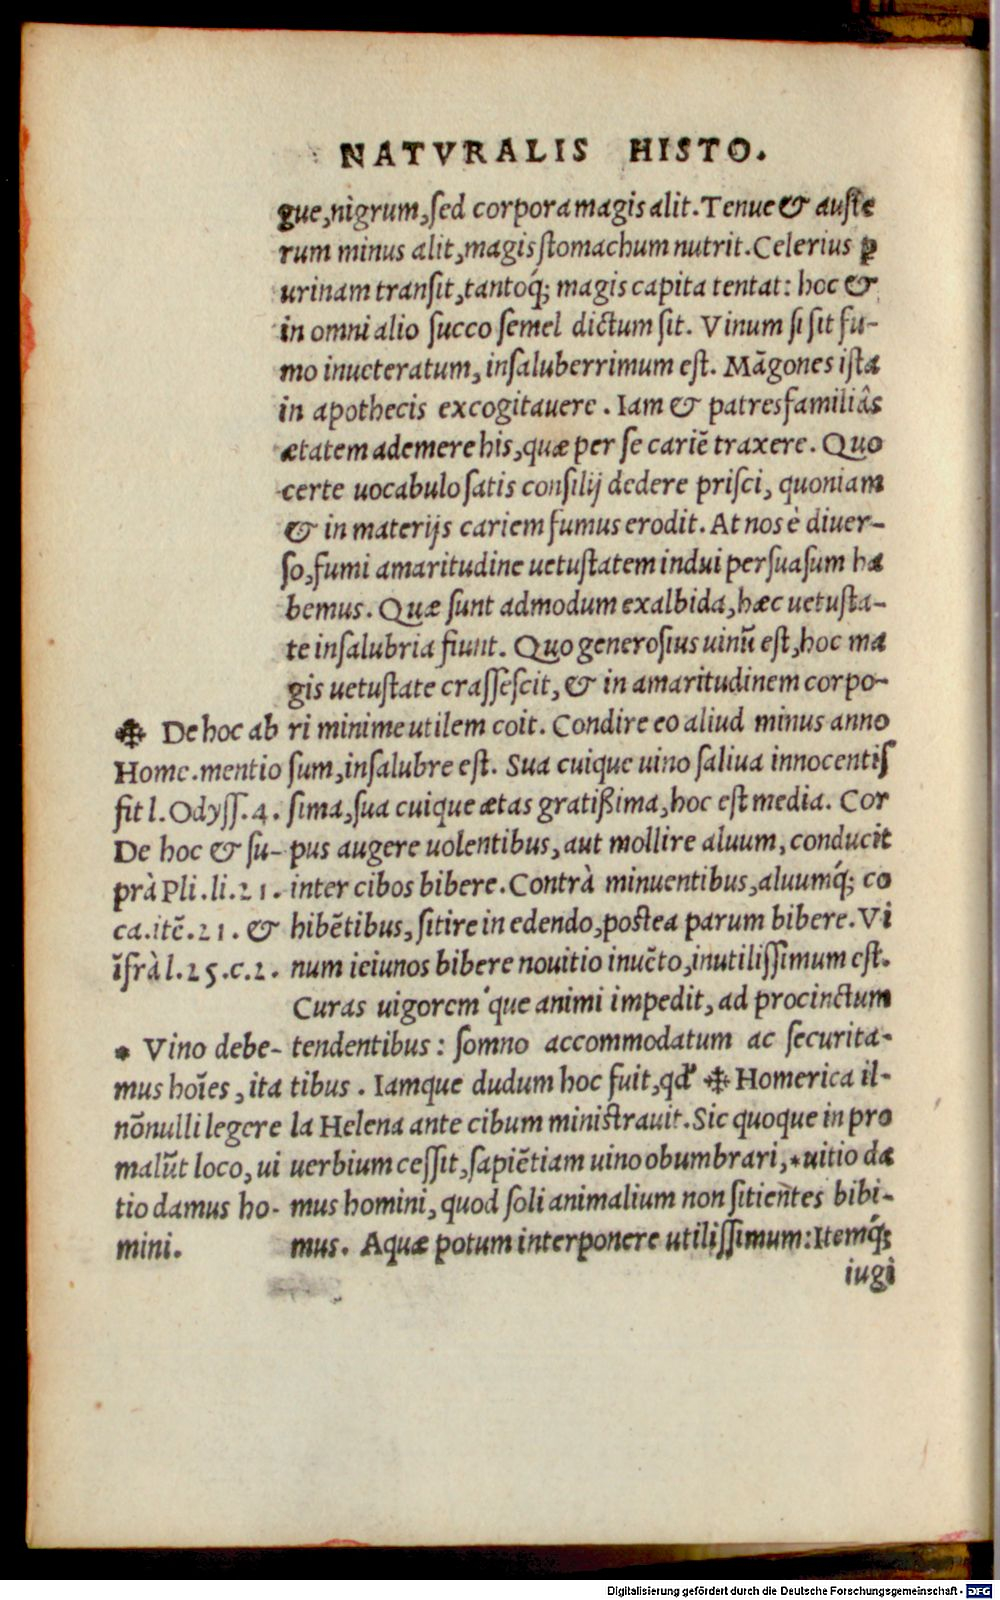 NATVRALIS HISTO.
gue,nigrum,ſed corpora magis alit.Tenue & auſte
rum minus alit,magis ſtomachum nutrit.Celerius ꝑ
urinam tranſit,tantoq́; magis capita tentat: hoc &
in omni alio ſucco ſemel dictum ſit. Vinum ſi ſit fu-
mo inueteratum, inſaluberrimum eſt. Mãgones iſta
in apothecis excogitauere . Iam & patresfamiliâs
ætatem ademere his,quæ per ſe cariẽ traxere. Quo
certe uocabulo ſatis conſilij dedere priſci, quoniam
& in materijs cariem fumus erodit. At nos è diuer-
ſo,fumi amaritudine uetuſtatem indui perſuaſum ha
bemus. Quæ ſunt admodum exalbida,hæc uetuſta-
te inſalubria fiunt. Quo generoſius uinũ eſt,hoc ma
gis uetuſtate craſſeſcit, & in amaritudinem corpo-
ri minime utilem coit. Condire eo aliud minus anno
ſum,inſalubre eſt. Sua cuique uino ſaliua innocentiſ
ſima,ſua cuique ætas gratißima,hoc eſt media. Cor
pus augere uolentibus, aut mollire aluum, conducit
inter cibos bibere. Contrà minuentibus,aluumq́; co
hibẽtibus, ſitire in edendo,poſtea parum bibere. Vi
num ieiunos bibere nouitio inuẽto,inutiliſſimum eſt.
Curas uigorem'que animi impedit, ad procinctum
tendentibus : ſomno accommodatum ac ſecurita-
tibus . Iamque dudum hoc fuit,qđ ✙ Homerica il-
la Helena ante cibum miniſtrauit. Sic quoque in pro
uerbium ceſſit,ſapiẽtiam uino obumbrari,*uitio da
mus homini, quod ſoli animalium non ſitientes bibi-
mus. Aquæ potum interponere utiliſſimum:Itemq́;
iugi
✙ De hoc ab
Home.mentio
fit l. Odyſſ.4.
De hoc & ſu-
prà Pli.li.21.
ca.itẽ.21. &
ĩfrà l.25.c.2.
* Vino debe-
mus hoĩes, ita
nõnulli legere
malũt loco, ui
tio damus ho-
mini.
Digitalisierung gefördert durch die Deutsche Forschungsgemeinschaft - DFG